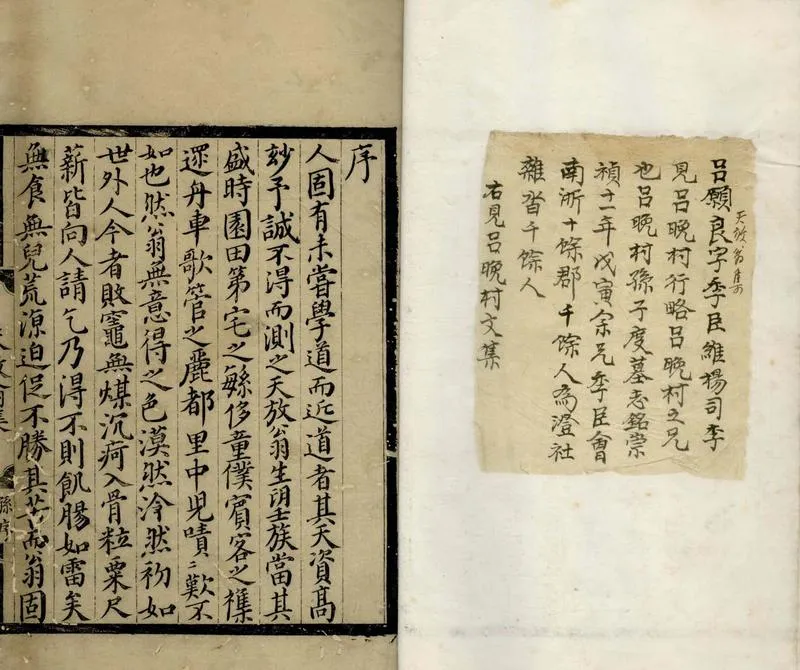 呂願良字季臣維揚司李
天放翁集
見呂晚村行略呂晚村之兄
也呂晚村孫子度墓志銘崇
禎十一年戊寅余兄季臣會
南浙十餘郡千餘人為澄社
雜沓千餘人
右見呂晚村文集
序
人固有未嘗學道而近道者其天資高
玅予誠不得而測之天放翁生朢族當其
盛時園田第宅之緐侈童僕賓客之襍
遝舟車歌管之麗都里中皃嘖〻歎不
如也然翁無意得之色漠然泠然初如
世外人今者敗竈無煤沉疴入骨粒粟尺
薪皆向人請乞乃得不則飢腸如雷矣
無食無兒荒源迫促不勝其苦而翁固
孫序